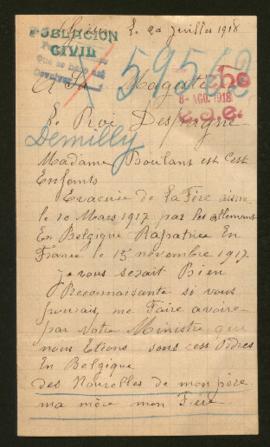 le 20 juillet 1918
POBLACION
CIVIL
59562
8 - AGO. 1918
A Sa Magesté
Le Roi Despagne
Demilly
Madame Boulans est c'est
Enfants
Evacuée de La Fère aisne
le 10 Mars 1917 par les allemant
En Belgique Rapatriée En
France le 15 novembre 1917
je vous serait Bien
Reconnaisante si vous
pouvais me Faire avoire
par Votre Ministre qui
nous Etions sous ces Ordres
En Belgique
des Nouvelles de mon père
ma mère mon Frère